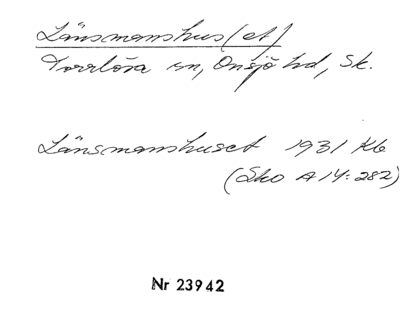 Länsmanshus(et)
Torrlösa sn, Onsjö hd, Sk.
Länsmanshuset 1931 Kb
(Sko A 14: 282)
Nr 23942